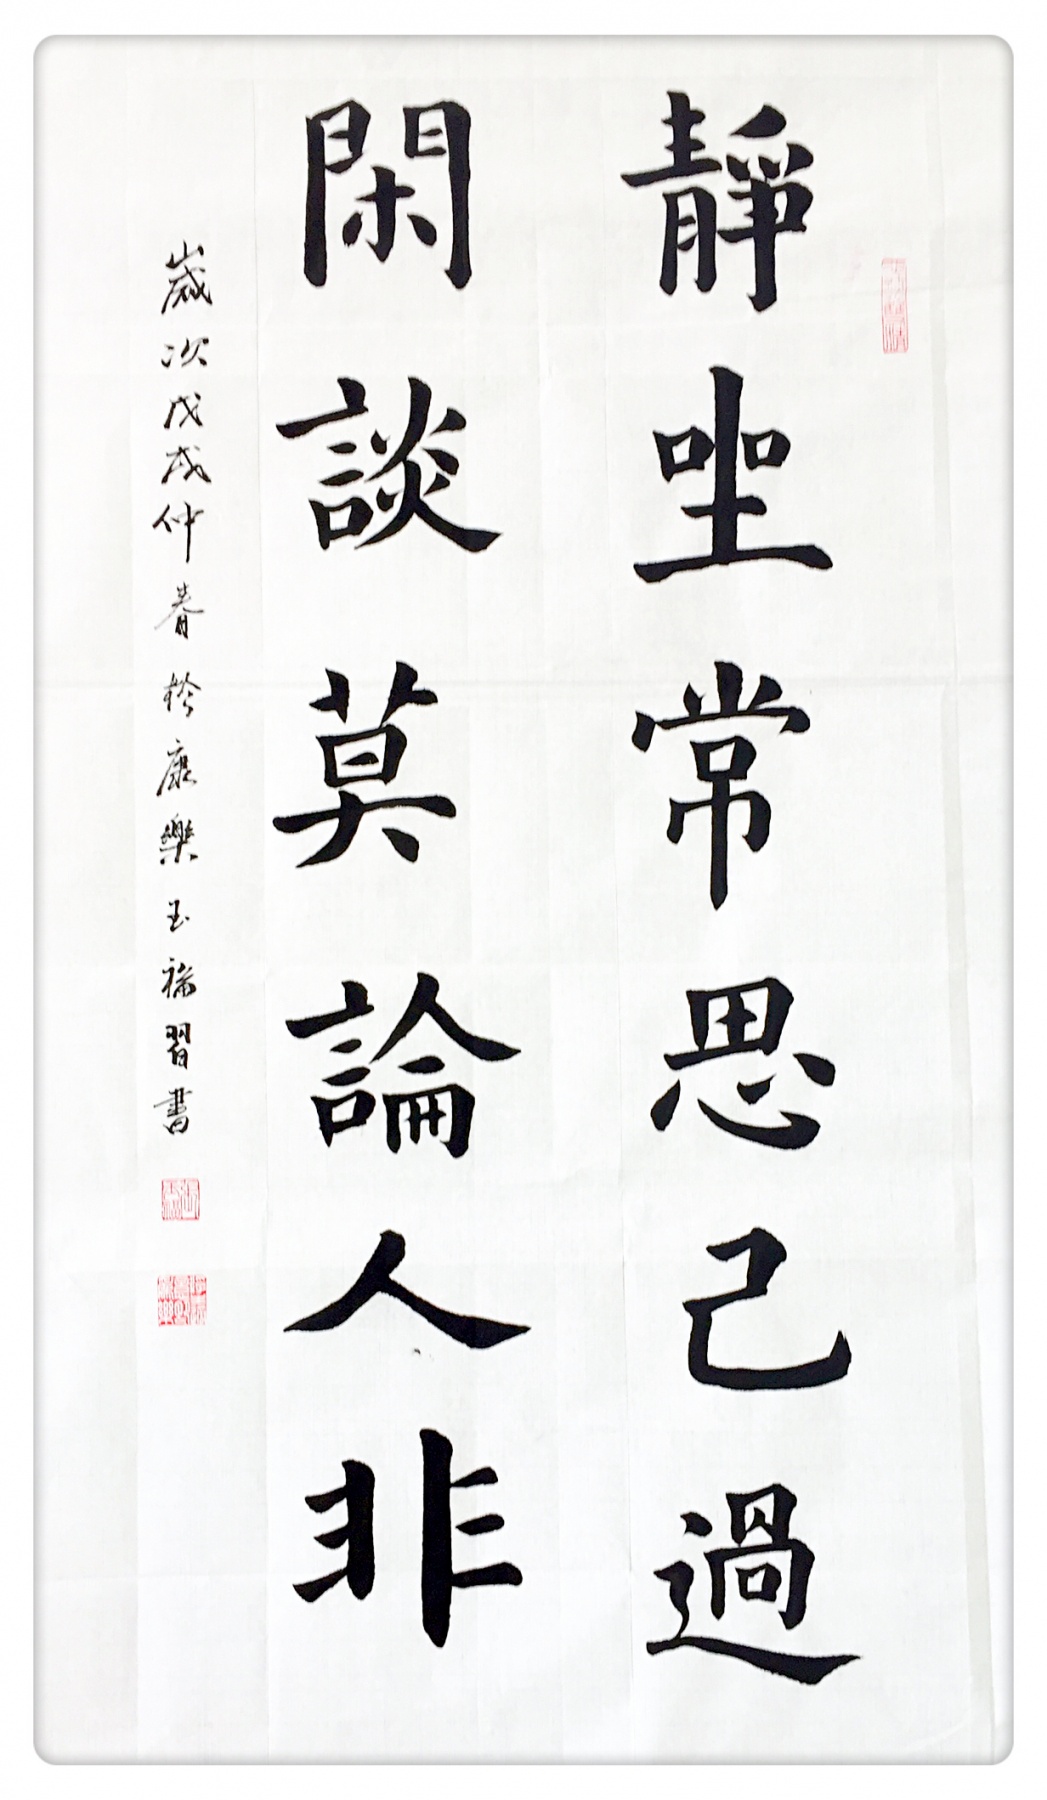 靜坐常思己過
閑談莫論人非
歲次戊戌仲春於康樂玉福習書